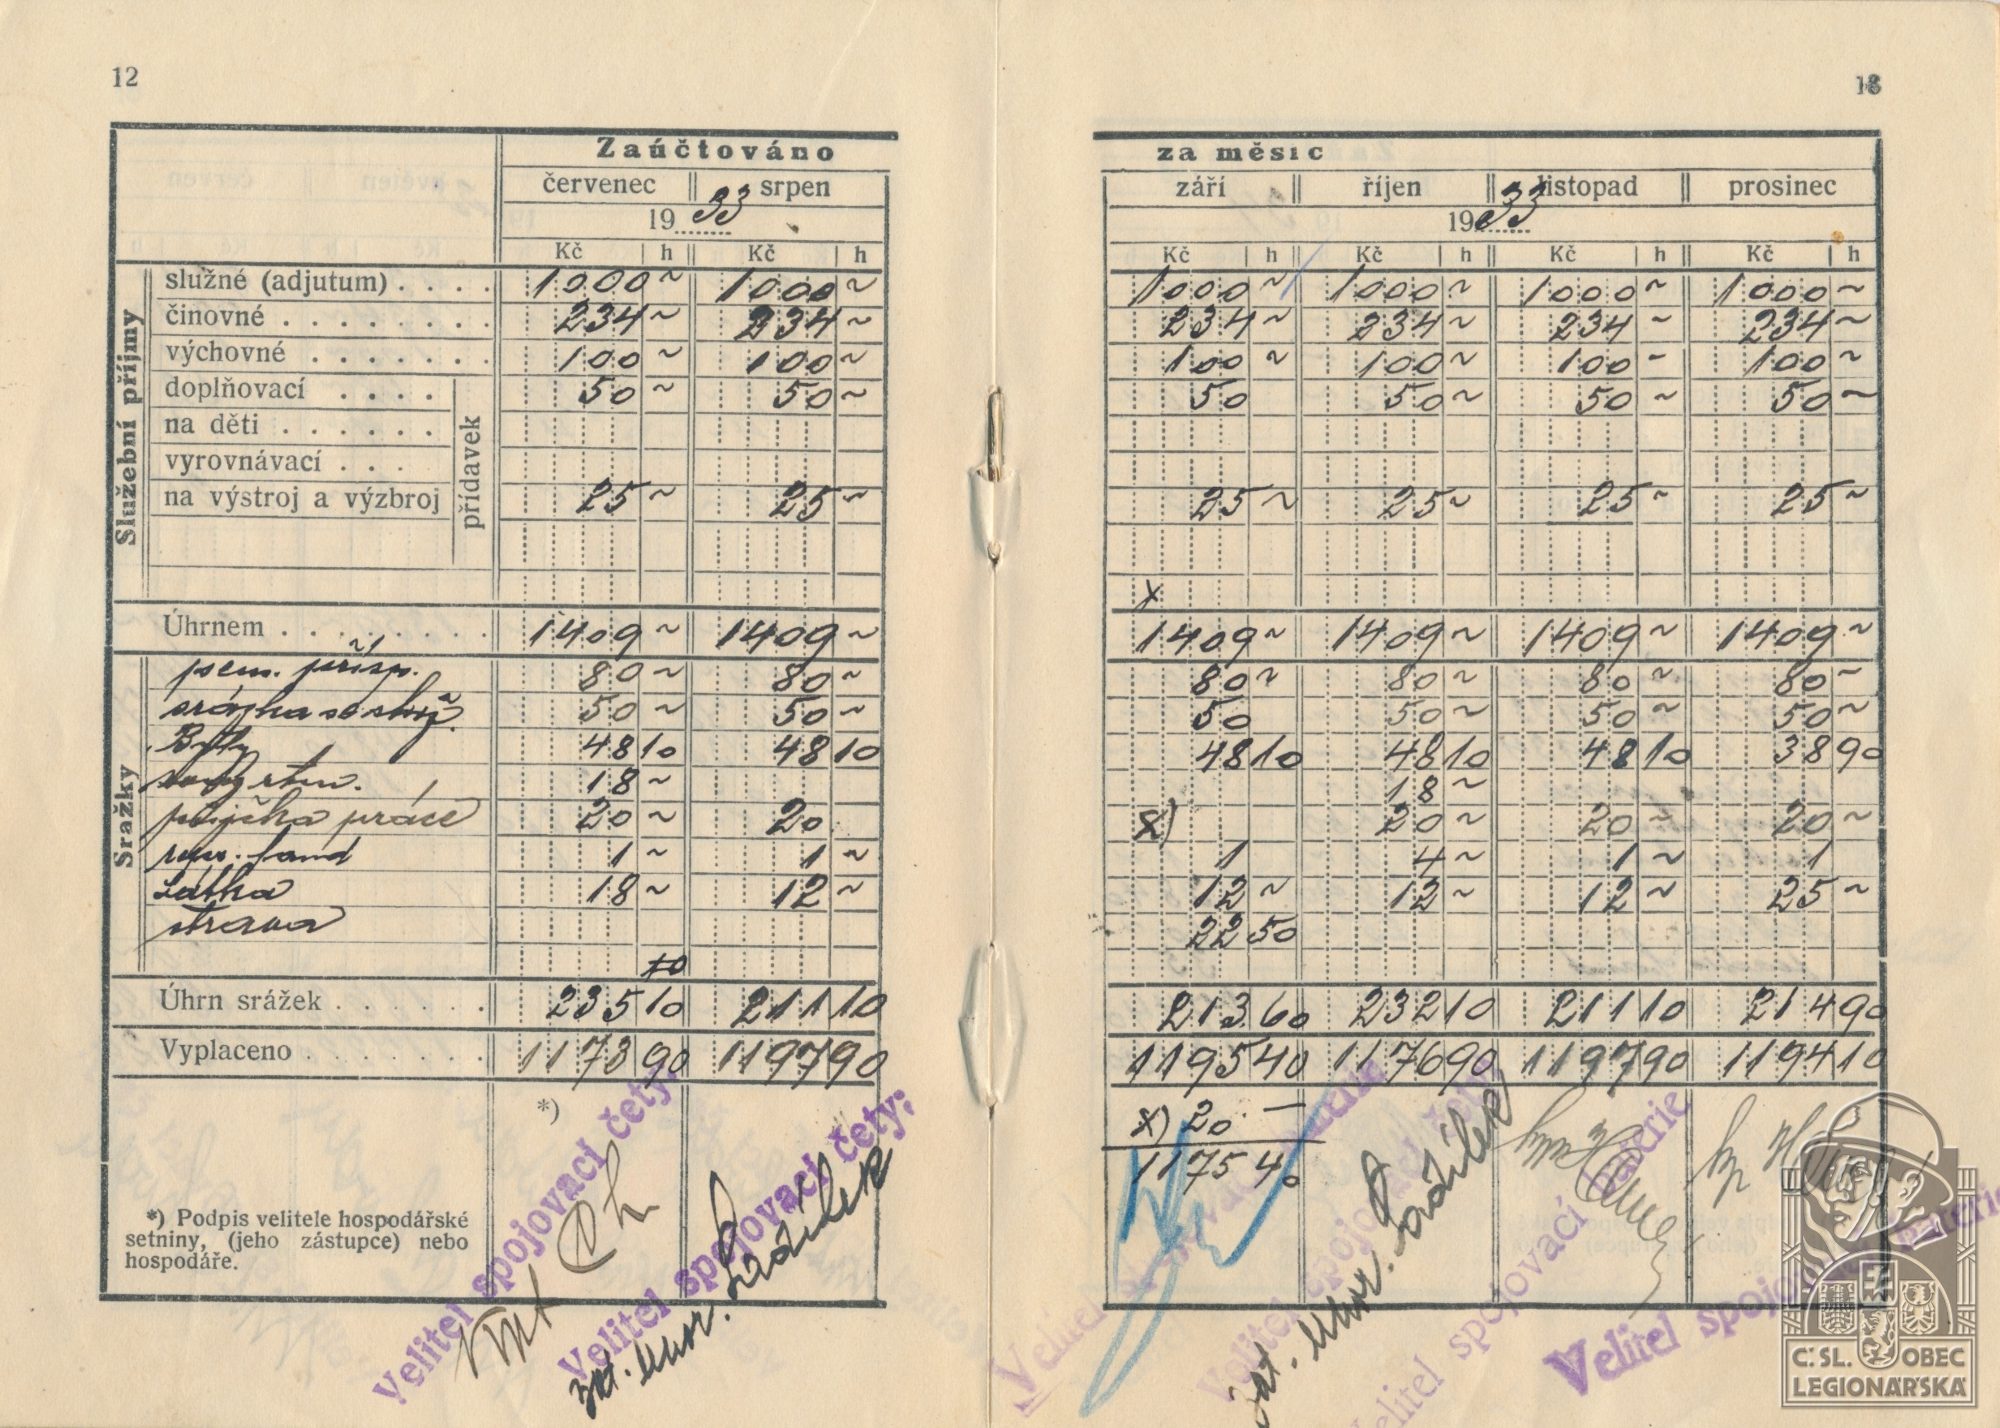 12
Zaúčtováno
červenec srpen
19 33
Kč h Kč h
Služební příjmy
služné (adjutum) . . . . 1000 ~ 1000 ~
činovné . . . . . . . . 234 ~ 234 ~
výchovné . . . . . . . 100 ~ 100 ~
přídavek
doplňovací . . . . 50 ~ 50 ~
na děti . . . . . .
vyrovnávací . . .
na výstroj a výzbroj 25 ~ 25 ~
Úhrnem . . . . . . . . 1409 ~ 1409 ~
Srážky
pen. přísp. 80 ~ 80 ~
srážka 50 ~ 50 ~
Byty 48 10 48 10
18 ~
půjčka práce 20 ~ 20
fond 1 ~ 1 ~
Látka 18 ~ 12 ~
strava
Úhrn srážek . . . . . . 235 10 211 10
Vyplaceno . . . . . . . 1173 90 1197 90
*)
*) Podpis velitele hospodářské
setniny, (jeho zástupce) nebo
hospodáře.
Velitel spojovací čety:
Velitel spojovací čety:
13
za měsíc
září říjen listopad prosinec
1933
Kč h Kč h Kč h Kč h
1000 ~ 1000 ~ 1000 ~ 1000 ~
234 ~ 234 ~ 234 ~ 234 ~
100 ~ 100 ~ 100 ~ 100 ~
50 50 ~ 50 ~ 50 ~
25 ~ 25 ~ 25 ~ 25 ~
x
1409 ~ 1409 ~ 1409 ~ 1409 ~
80 ~ 80 ~ 80 ~ 80 ~
50 50 ~ 50 ~ 50 ~
48 10 48 10 48 10 38 90
18 ~
x) 20 ~ 20 ~ 20 ~
1 4 ~ 1 ~ 1
12 ~ 12 ~ 12 ~ 25 ~
22 50
213 60 232 10 211 10 214 90
1195 40 1176 90 1197 90 1194 10
x) 20 . —
1175 40
Velitel spojovací baterie
Velitel spojovací
Č. SL. OBEC
LEGIONÁŘSKÁ